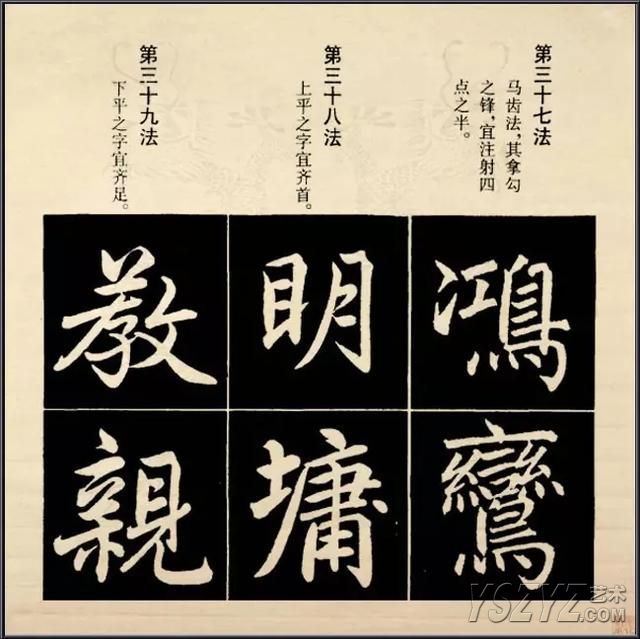 第三十七法
马齿法，其拿勾
之锋，宜注射四
点之半。
鴻
鸞
第三十八法
上平之字宜齐首。
明
墉
第三十九法
下平之字宜齐足。
教
親
YSZYZ艺术.com